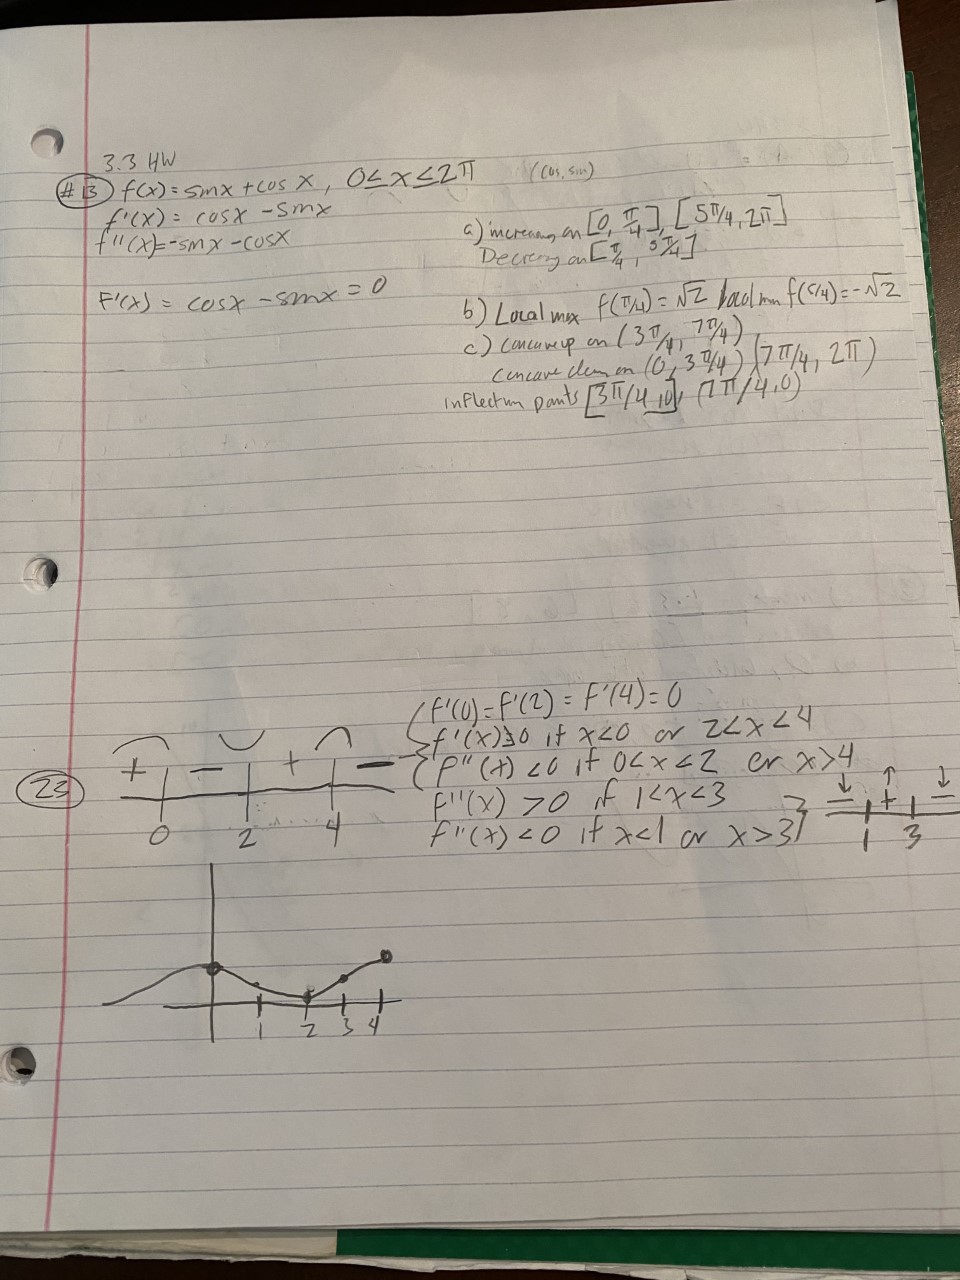 3.3 HW
#13) f(x) = sinx + cos x, 0≤x≤2π (cos, sin)
f'(x) = cosx - sinx
f''(x) = -sinx - cosx
F'(x) = cosx - sinx = 0
a) increasing on [0, π/4], [5π/4, 2π]
Decreasing on [π/4, 5π/4]
b) Local max f(π/4) = √2 local min f(5/4) = -√2
c) Concave up on (3π/4, 7π/4)
Concave down on (0, 3π/4) (7π/4, 2π)
inflection points [3π/4, 0], (7π/4, 0)
25
f'(0) = f'(2) = f'(4) = 0
f'(x) > 0 if x<0 or 2<x<4
f''(x) <0 if 0<x<2 or x>4
f''(x) >0 if 1<x<3
f''(x) <0 if x<1 or x>3
+ - + -
0 2 4
↓ ↑ ↓
- + -
1 3
1 2 3 4